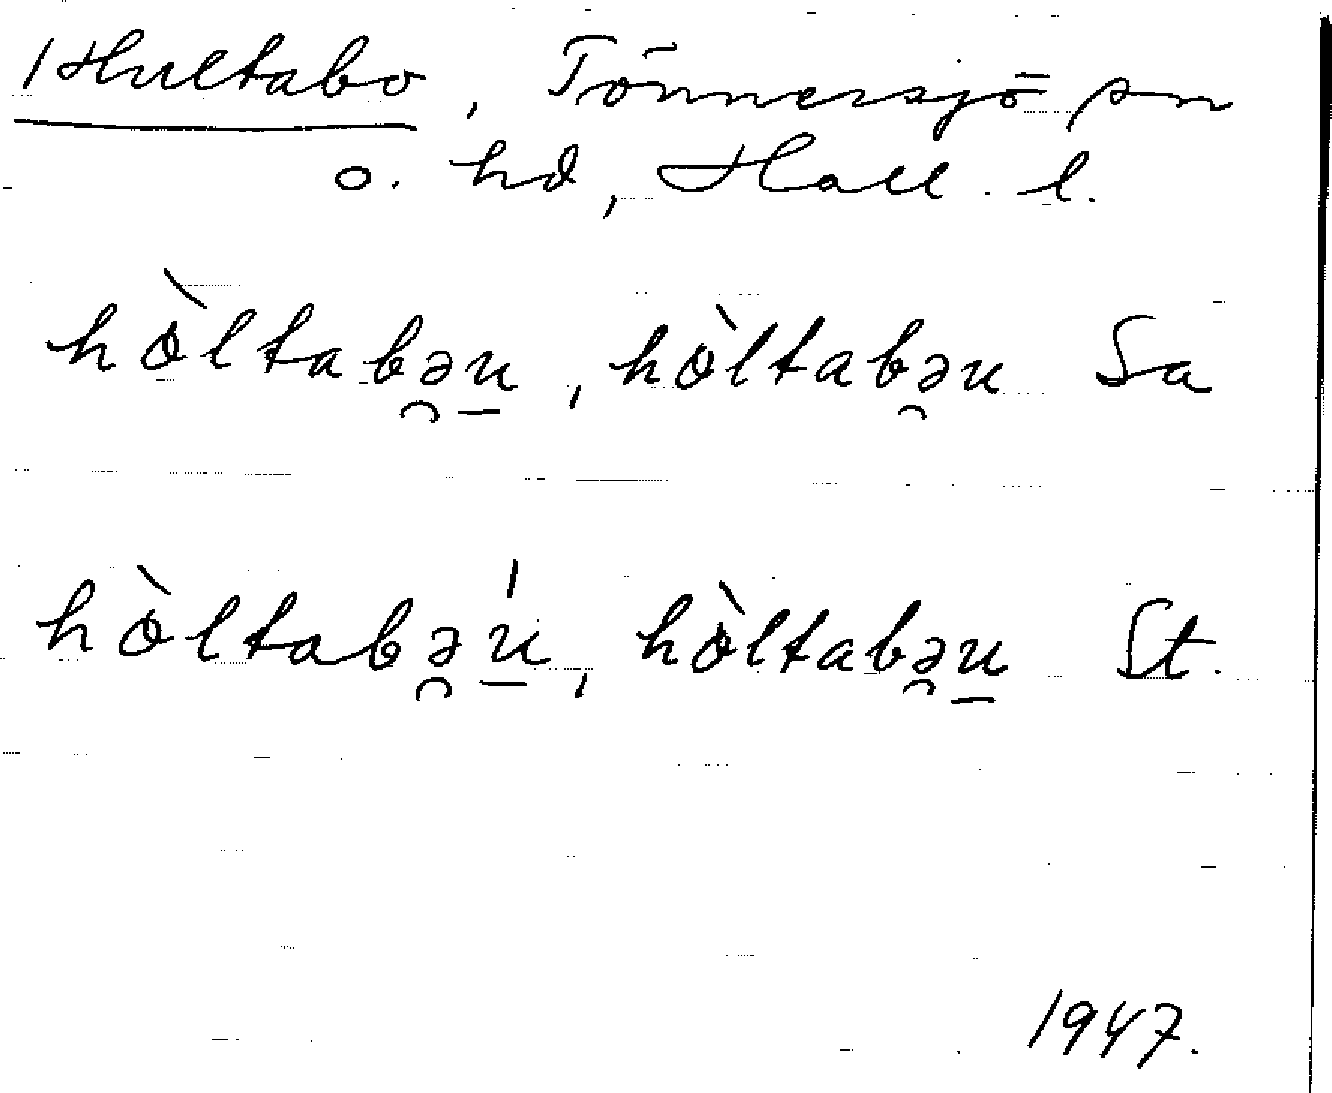 Hultabo, Tönnersjö sn
o. hd, Hall. l.
hòltabə̯u̱, hòltabə̯u Sa
hòltabə̯ú̱, hòltabə̯u̱ St.
1947.